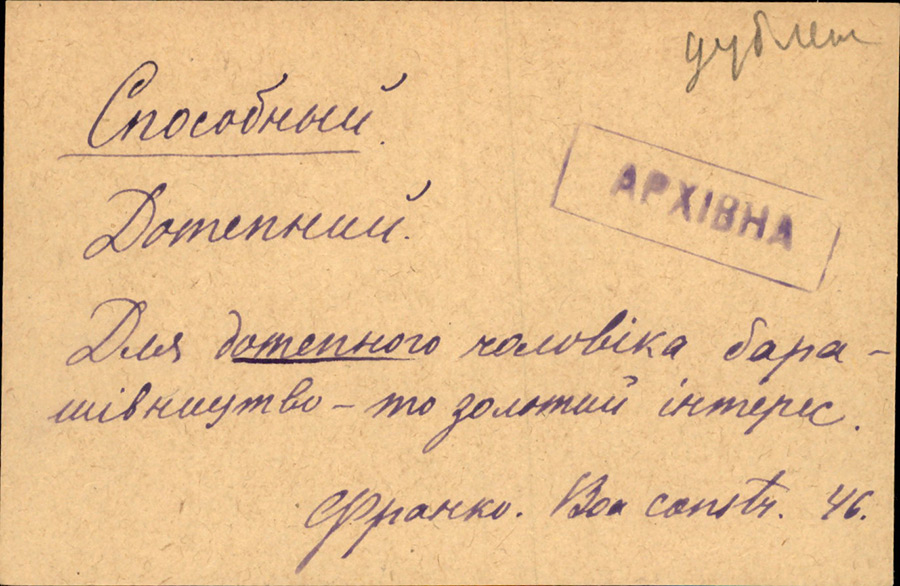 дублет
Способный
АРХІВНА
Дотепний.
Для дотепного чоловіка бара-
шівництво – то золотий інтерес.
Франко. Boa constr. 46.